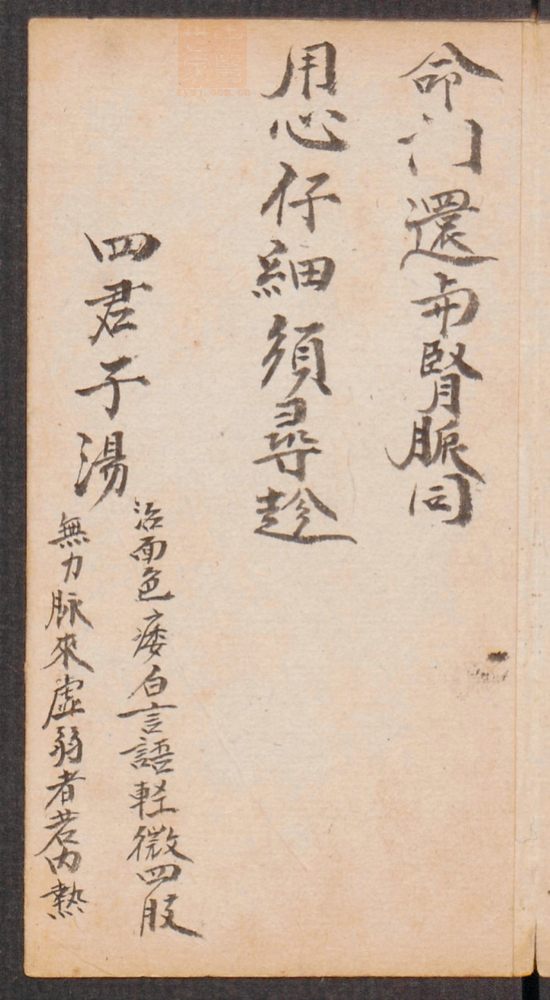 命门還與腎脈同
用心仔細須尋趁
四君子湯
治面色痿白言語軽微四肢
無力脉來虛弱者若内熱